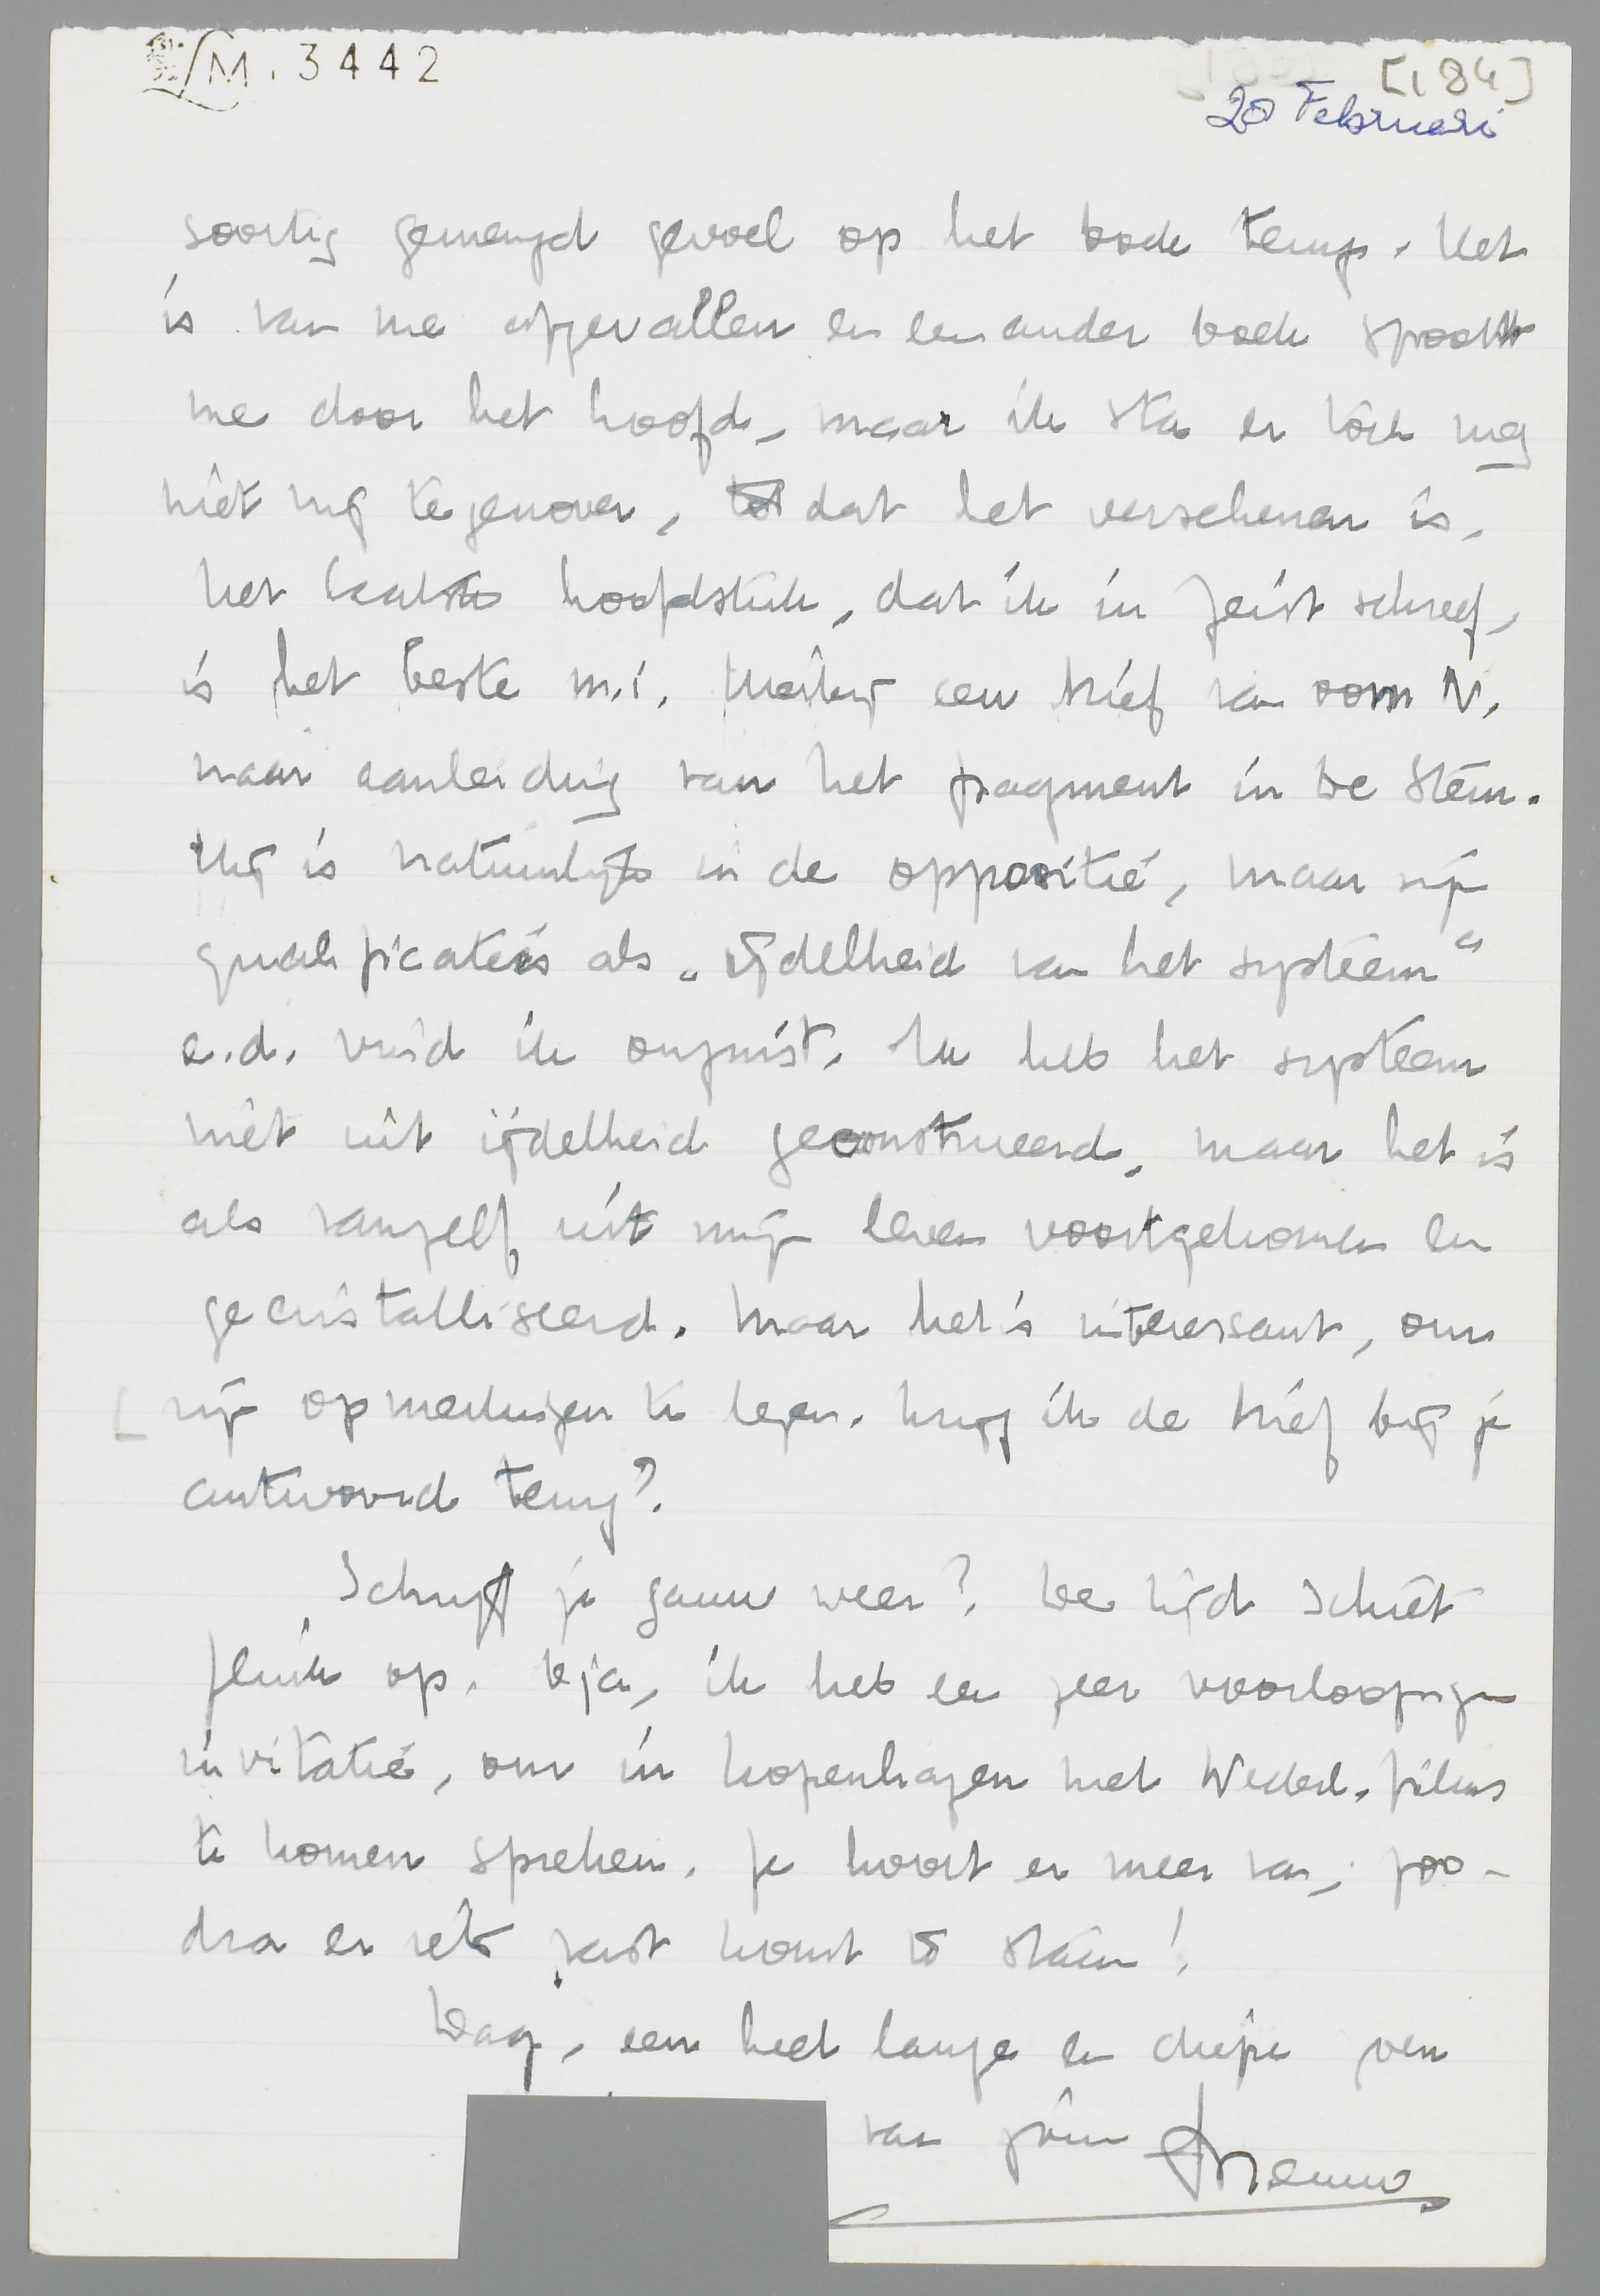 M. 3442
[184]
20 Februari
soortig gemengd gevoel op het boek terug. Het
is van me afgevallen en een ander boek spookt
me door het hoofd, maar ik sta er toch nog
niet vrij tegenover, tot dat het verschenen is.
Het laatste hoofdstuk, dat ik in Zeist schreef,
is het beste m.i. Hierbij een brief van oom N.
naar aanleiding van het fragment in De Stem.
Hij is natuurlijk in de oppositie, maar zijn
qualificaties als „ijdelheid van het systeem"
e.d. vind ik onjuist. Ik heb het systeem
niet uit ijdelheid geconstrueerd, maar het is
als vanzelf uit mijn leven voortgekomen en
gecristalliseerd. Maar het is interessant, om
zijn opmerkingen te lezen. Krijg ik de brief bij je
antwoord terug?
Schrijf je gauw weer? De tijd schiet
flink op. O ja, ik heb een zeer voorloopige
invitatie, om in Kopenhagen met Nederl. films
te komen spreken. Je hoort er meer van, zoo-
dra er iets vast komt te staan!
Dag, een heel lange en diepe zen
van jouw Menno